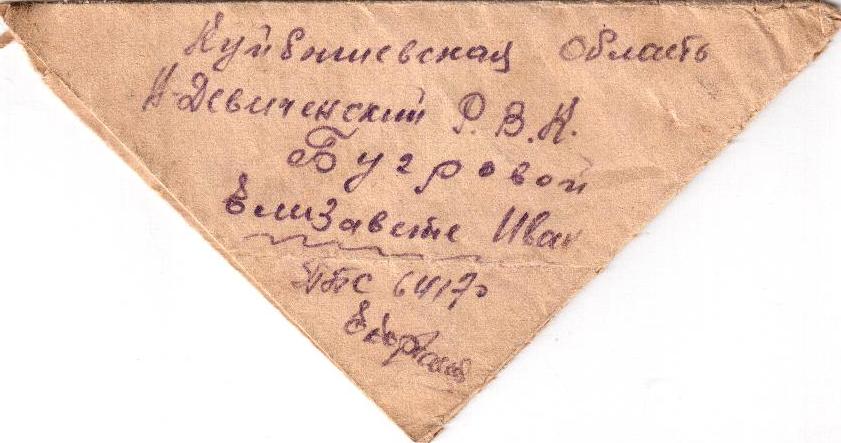 Куйбышевская область
Н-Девиченский Р.В.К.
Бугровой
Елизавете Иван
ППС